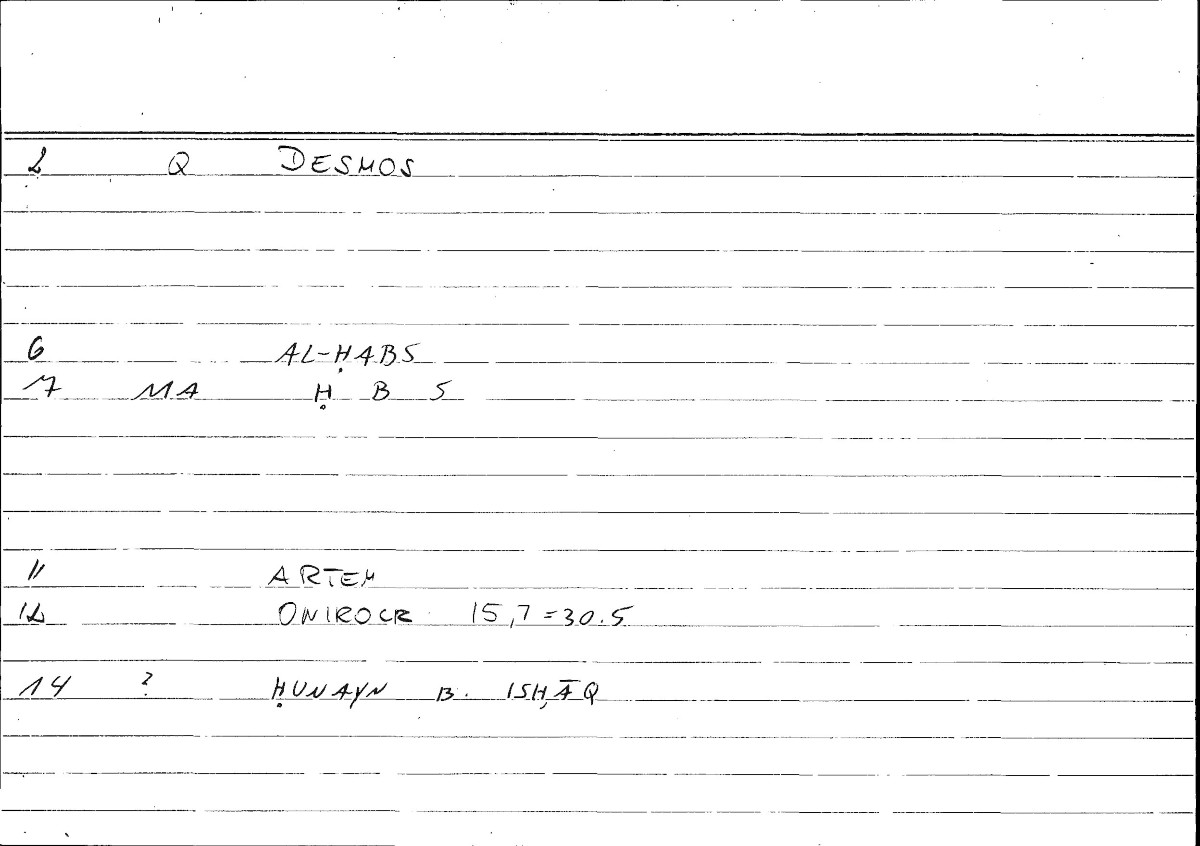 2 Q DESMOS
6 AL-ḤABS
7 MA Ḥ B S
11 ARTEM
12 ONIROCR 15,7=30.5
14 ? ḤUNAYN B. ISḤĀQ